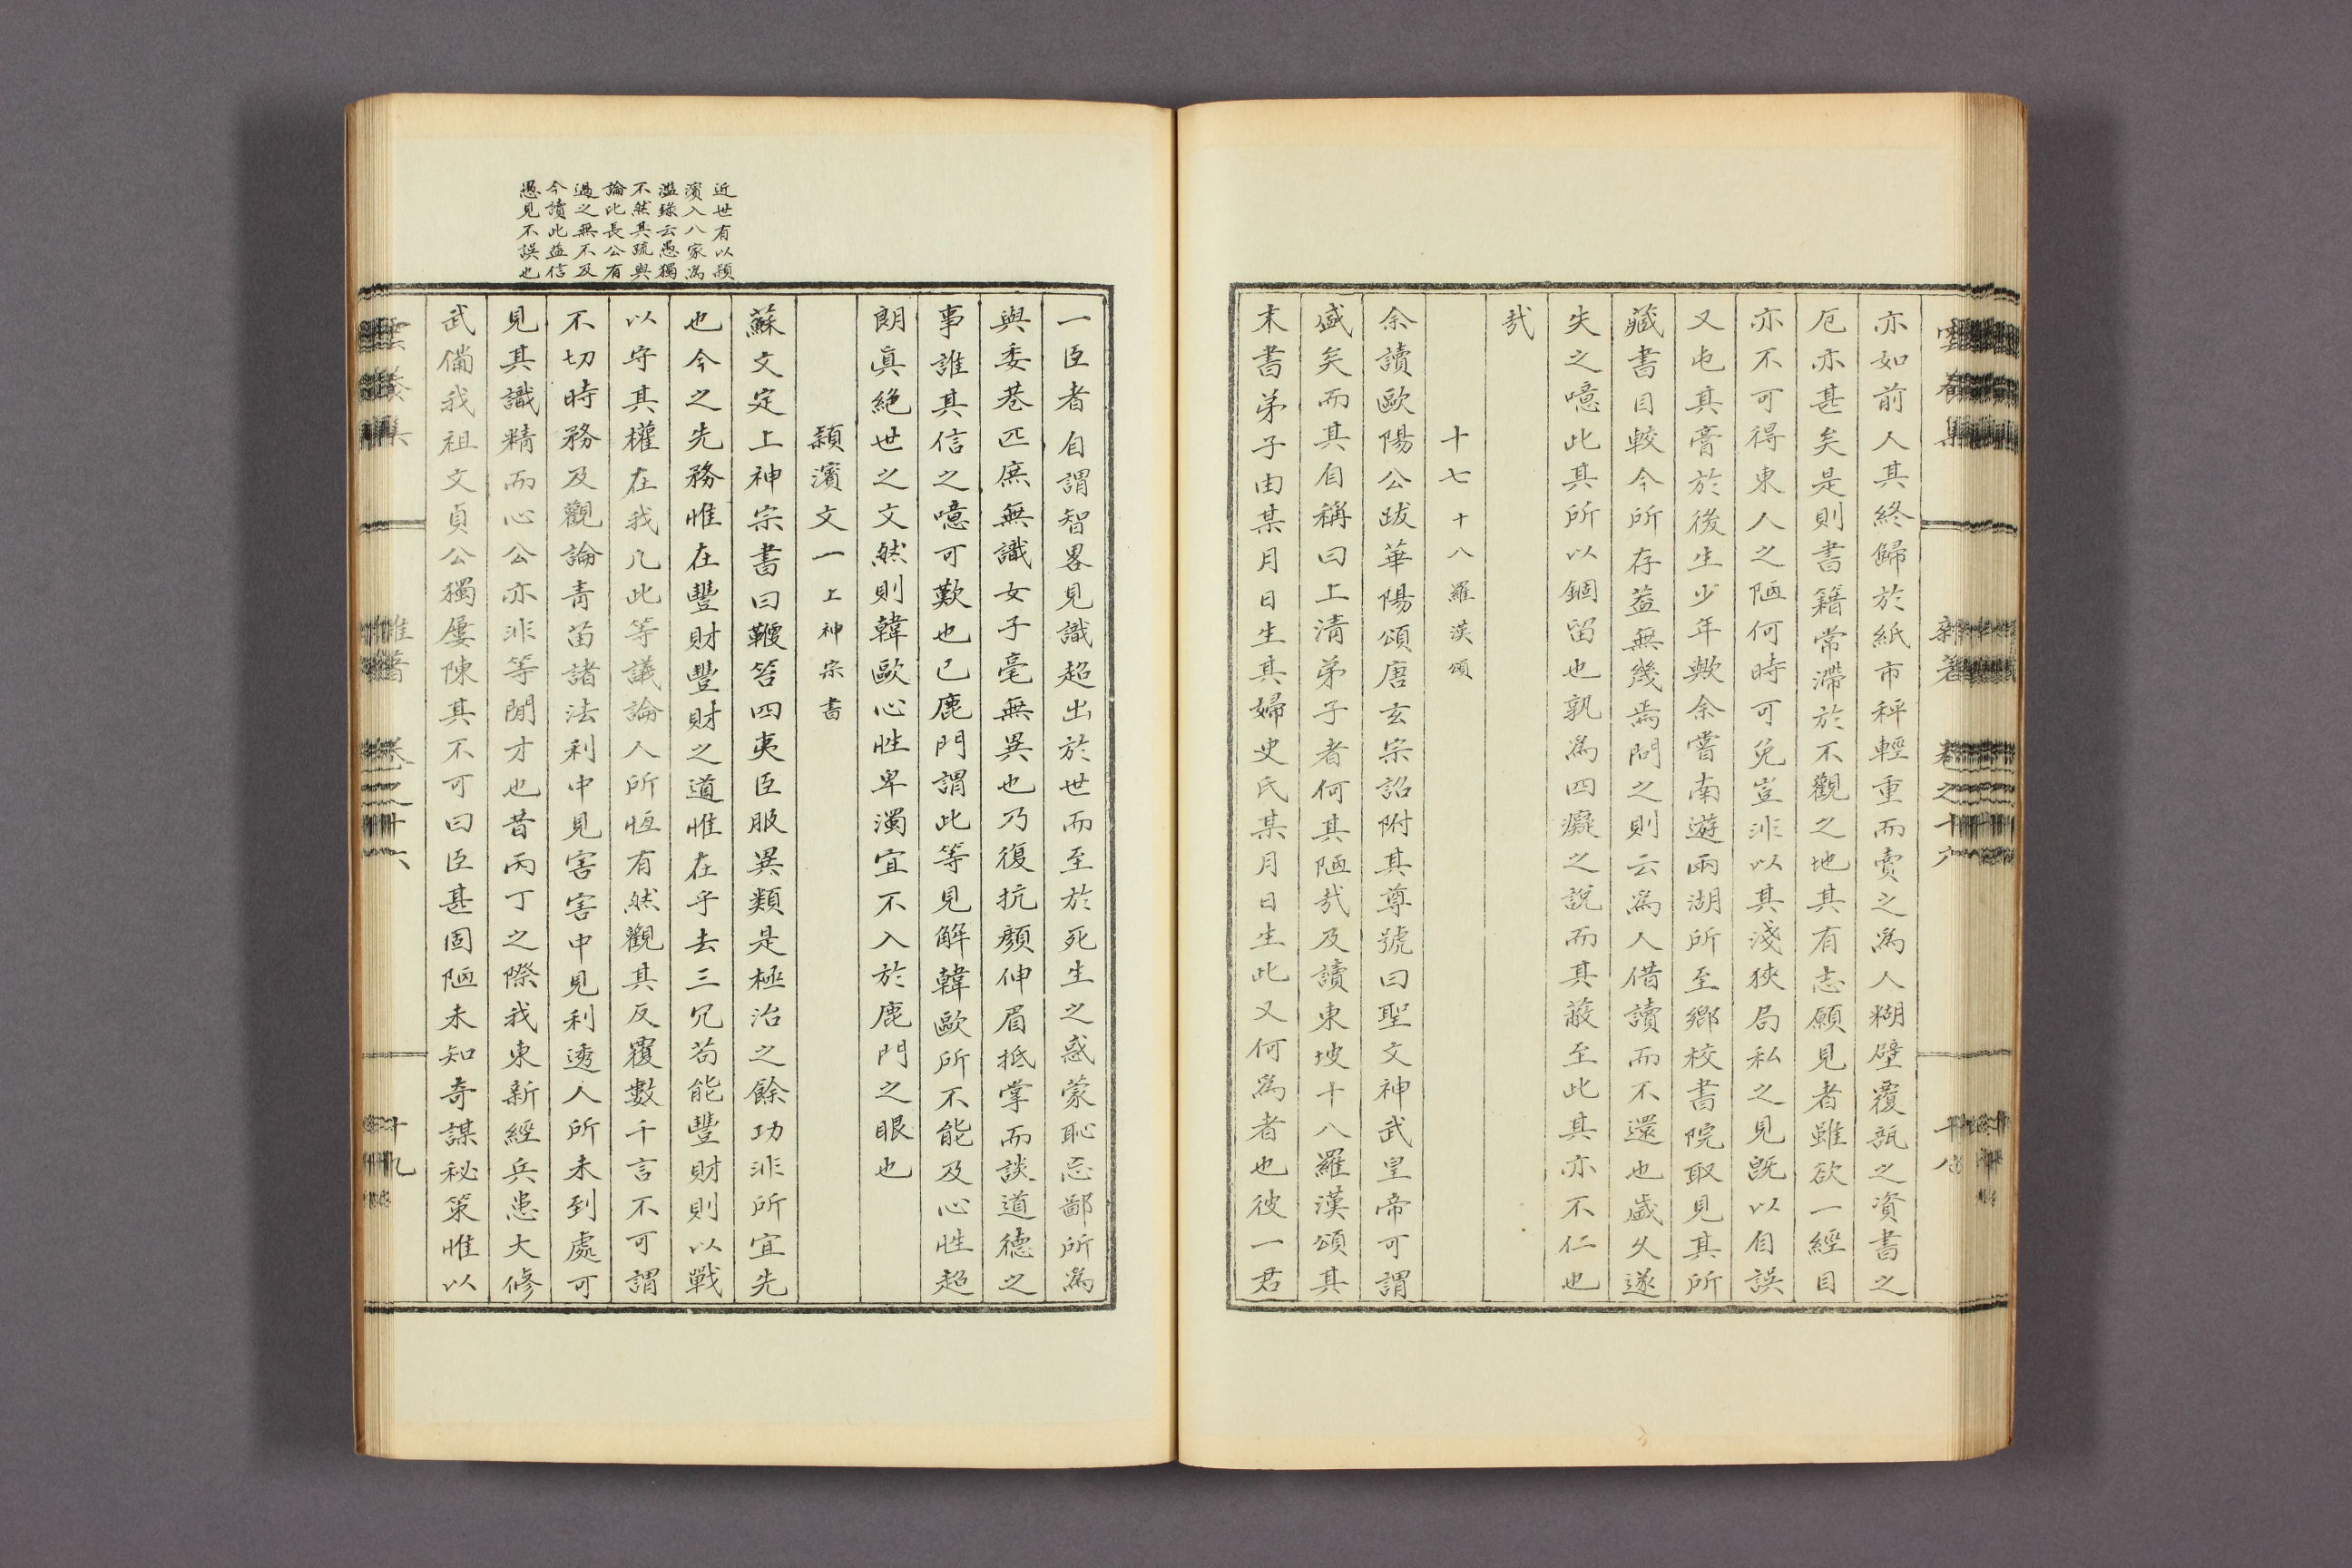 亦如前人其終歸於紙市秤輕重而賣之爲人糊壁覆瓿之資書之
厄亦甚矣是則書籍常滯於不觀之地其有志願見者雖欲一經目
亦不可得東人之陋何時可免豈非以其淺狹局私之見旣以自誤
又屯其膏於後生少年歟余嘗南遊兩湖所至鄉校書院取見其所
藏書目較今所存蓋無幾焉問之則云爲人借讀而不還也歲久遂
失之噫此其所以錮留也孰爲四癡之說而其蔽至此其亦不仁也
哉
十七 十八羅漢頌
余讀歐陽公跋華陽頌唐玄宗詔附其尊號曰聖文神武皇帝可謂
盛矣而其自稱曰上淸弟子者何其陋哉及讀東坡十八羅漢頌其
末書弟子由某月日生其婦史氏某月日生此又何爲者也彼一君
近世有以潁
濱入八家爲
濫錄云愚獨
不然其疏與
論比長公有
過之無不及
今讀此益信
愚見不誤也
一臣者自謂智畧見識超出於世而至於死生之惑蒙恥忘鄙所爲
與委巷匹庶無識女子毫無異也乃復抗顏伸眉抵掌而談道德之
事誰其信之噫可歎也已鹿門謂此等見解韓歐所不能及心性超
朗眞絶世之文然則韓歐心性卑濁宜不入於鹿門之眼也
潁濱文一 上神宗書
蘇文定上神宗書曰鞭笞四夷臣服異類是極治之餘功非所宜先
也今之先務惟在豐財豐財之道惟在乎去三冗苟能豐財則以戰
以守其權在我凡此等議論人所恆有然觀其反覆數千言不可謂
不切時務及觀論靑苗諸法利中見害害中見利透人所未到處可
見其識精而心公亦非等閒才也昔丙丁之際我東新經兵患大修
武備我祖文貞公獨屢陳其不可曰臣甚固陋未知奇謀秘策惟以
雜著 卷之十六 十九